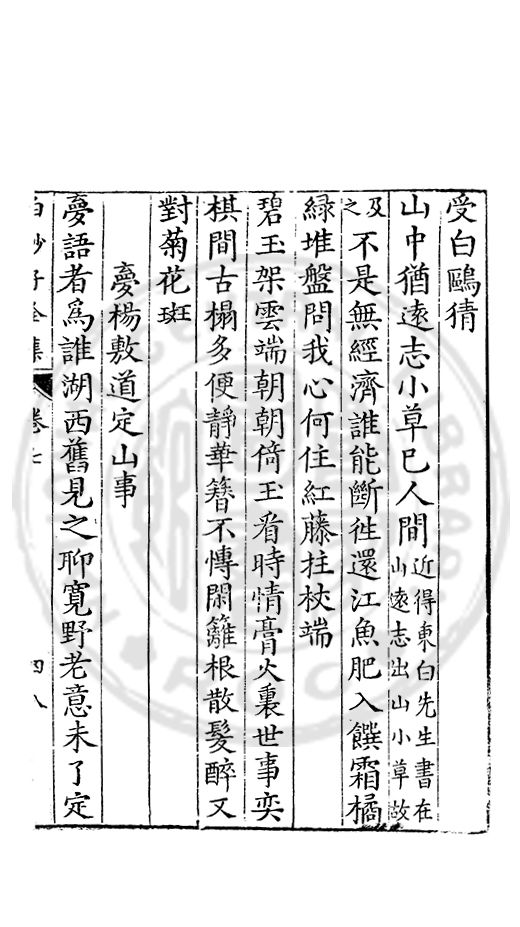 受白鷗猜
山中猶遠志小草已人間近得東白先生書在山遠志出山小草故
及之不是無經濟誰能斷徃還江魚肥入饌霜橘
緑堆盤問我心何住紅藤拄杖端
碧玉架雲端朝朝倚玉看時情膏火裏世事奕
棋間古榻多便靜華簪不愽閑籬根散髮醉又
對菊花斑
夢楊敷道定山事
夢語者爲誰湖西舊見之聊寛野老意未了定
白沙子全集 卷七 四八